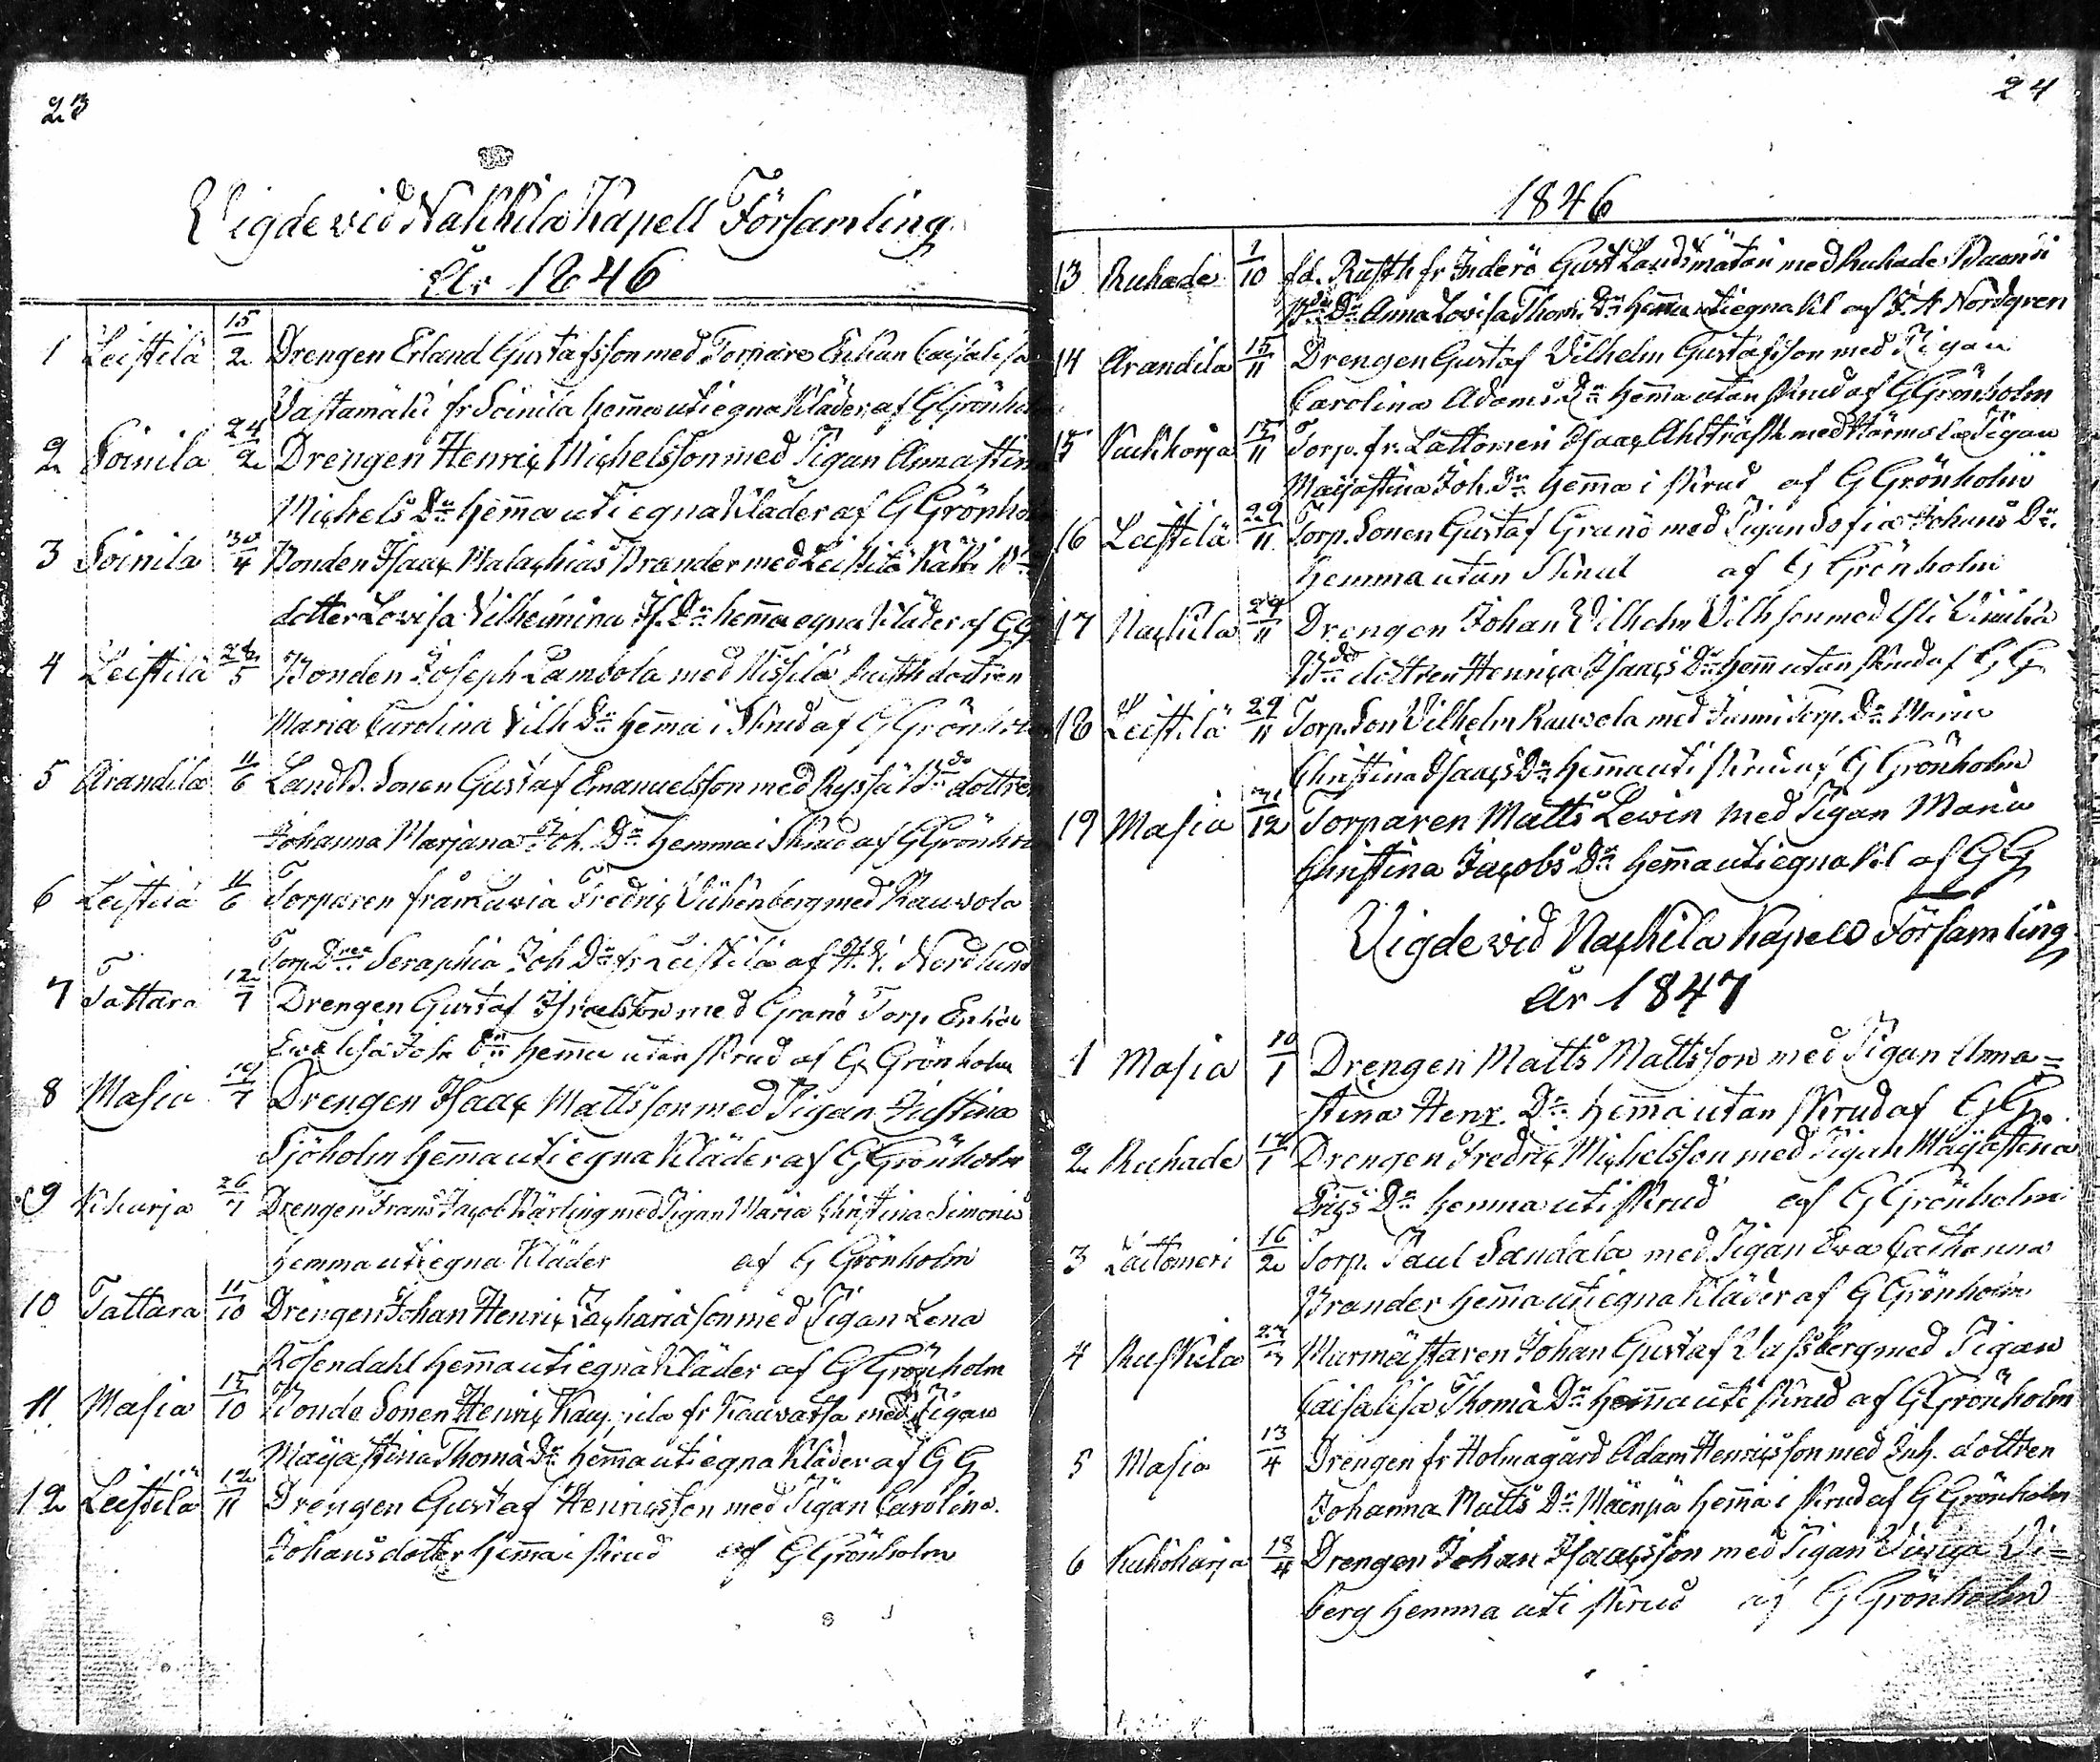 23
Vigde vid Nakkila Kapell Församling
År 1846
1 Leistilä 15/2 Drengen Erland Gustafsson med Torpare Enkan Caisalisa
Vastamäki fr Soinila hemma uti egna Kläder af G Grönholm
2 Soinila 24/2 Drengen Henric Michelsson med Pigan Annastina
Michels Dr hemma uti egna Kläder af G Grönholm
3 Soinila 30/4 Bonden Isaac Malachias Brander med Leistilä
dotter Lovisa Vilhelmina Is. Dr hemma egna Kläder af GG
4 Leistilä /5 Bonden Joseph Lambola med dottren
Maria Carolina Vilh Dr hemma i Skrud af G Grönholm
5 Arandila 11/6 Landb. Sonen Gustaf Emanuelsson med dottren
Johanna Marjana Joh. Dr hemma i Skrud af G Grönholm
6 Leistilä 11/6 Torparen från Fredric med Rauvola
Torp Seraphia Joh Dr fr Leistilä af Nordlund
7 Tattara 12/7 Drengen Gustaf Israelsson med Granö Torp Enkan
Evalisa Joh Dr hemma utan skrud af G Grönholm
8 Masia 19/7 Drengen Isaac Mattsson med Pigan Justina
Sjöholm hemma uti egna Kläder af G Grönholm
9 26/7 Drengen Frans Jacob Kärling med Pigan Maria Christina Simonis
hemma uti egna Kläder af G Grönholm
10 Tattara 11/10 Drengen Johan Henric Zachariasson med Pigan Lena
Rosendahl hemma uti egna Kläder af G Grönholm
11 Masia 15/10 Bonde Sonen Henric fr Kauvatsa med Pigan
Majastina Thoma Dr hemma uti egna Kläder af GG
12 Leistilä 12/11 Drengen Gustaf Henricsson med Pigan Carolina
Johansdotter hemma i skrud af G Grönholm
24
1846
13 Ruhade 1/10 fd. Rusth fr Inderö Gust med Ruhade
Dr Anna Lovisa Thom. Dr hemma uti egna kl af Nordgren
14 Arandila 15/11 Drengen Gustaf Vilhelm Gustafsson med Pigan
Carolina Adams Dr hemma utan skrud af G Grönholm
15 15/11 Torp. fr. Lattomeri Isaac med Pigan
Majastina Joh. Dr hemma i skrud af G Grönholm
16 Leistilä 29/11 Torp. Sonen Gustaf Granö med Pigan Sofia Johans Dr
hemma utan Skrud af G Grönholm
17 Nackila 29/11 Drengen Johan Vilhelm Vilhsson med
dottren Henrica Isaacs Dr hemm utan skrud af GG
18 Leistilä 29/11 Torp. Son Vilhelm Rauvola med Torp. Dr Maria
Christina Isaacs Dr hemma uti skrud af G Grönholm
19 Masia /12 Torparen Matts Lewin med Pigan Maria
Christina Jacobs Dr hemma uti egna kl af GG
Vigde vid Nackila Kapells Församling
År 1847
1 Masia 10/1 Drengen Matts Mattsson med Pigan Anna=
stina Henr. Dr hemma utan skrud af GG.
2 Ruhade 17/1 Drengen Fredric Michelsson med Pigan Majastina
Erics Dr hemma uti skrud af G Grönholm
3 Lattomeri 16/2 Torp. Paul Sandala med Pigan Eva Catharina
Brander hemma uti egna Kläder af G Grönholm
4 Ruskila Murmästaren Johan Gustaf med Pigan
Caisalisa Thoma Dr hemma uti skrud af G Grönholm
5 Masia 13/4 Drengen fr Holmagård Adam Henricsson med Inh. dottren
Johanna Matts Dr Mäenpä hemma i skrud af G Grönholm
6 18/4 Drengen Johan Isaacsson med Pigan Vi=
berg hemma uti skrud af G Grönholm